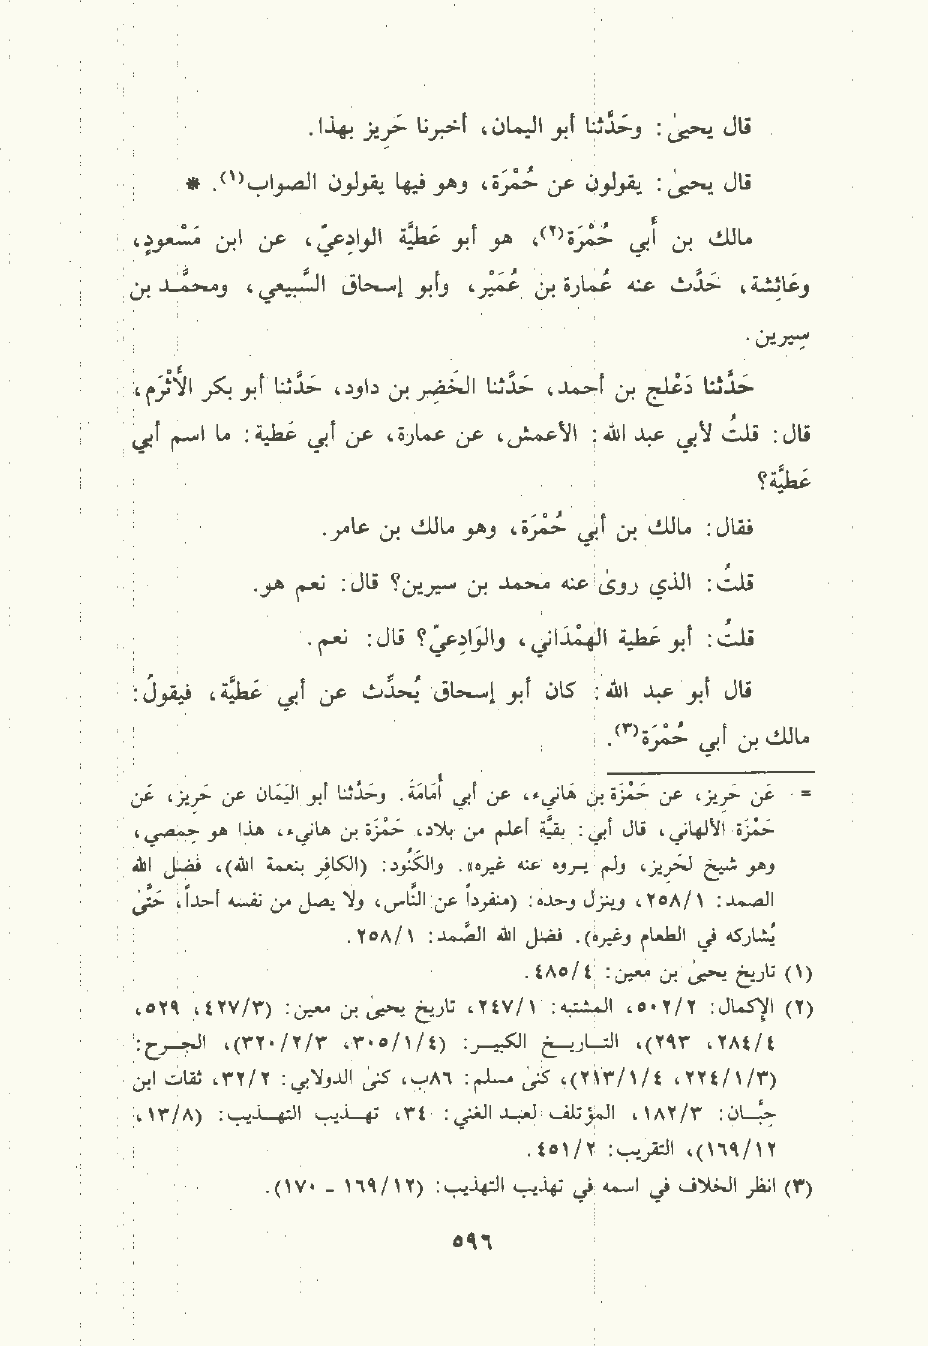 قال يحيىٰ: وحَدَّثنا أبو اليمان، أخبرنا حَرِيز بهذا.
قال يحيىٰ: يقولون عن حُمْرَة، وهو فيها يقولون الصواب(١). *
مالك بن أبي حُمْرَة(٢)، هو أبو عَطيَّة الوادِعيّ، عن ابن مَسْعودٍ،
وعَائِشة، حَدَّث عنه عُمارة بن عُمَيْر، وأبو إسحاق السَّبيعي، ومحمَّد بن
سِيرين.
حَدَّثنا دَعْلج بن أحمد، حَدَّثنا الخَضِر بن داود، حَدَّثنا أبو بكر الأَثْرَم،
قال: قلتُ لأبي عبد الله: الأعمش، عن عمارة، عن أبي عَطية: ما اسم أبي
عَطيَّة؟
فقال: مالك بن أبي حُمْرَة، وهو مالك بن عامر.
قلتُ: الذي روىٰ عنه محمد بن سيرين؟ قال: نعم هو.
قلتُ: أبو عَطية الهمْدَاني، والوَادِعيّ؟ قال: نعم.
قال أبو عبد الله: كان أبو إسحاق يُحدِّث عن أبي عَطيَّة، فيقولُ:
مالك بن أبي حُمْرَة(٣).
= عَن حَرِيز، عن حَمْزَة بن هَانيء، عن أبي أُمَامَة. وحَدَّثنا أبو اليَمَان عن حَرِيز، عَن
حَمْزَة الألهاني، قال أبي: بقيَّة أعلم من بلاد، حَمْزَة بن هانيء، هذا هو حِمصي،
وهو شيخ لحَرِيز، ولم يروه عنه غيره». والكَنُود: (الكافِر بنعمة الله)، فضل الله
الصمد: ٢٥٨/١، وينزل وحده: (منفرداً عن النَّاس، ولا يصل من نفسه أحداً، حَتَّىٰ
يُشاركه في الطعام وغيره). فضل الله الصَّمد: ٢٥٨/١.
(١) تاريخ يحيىٰ بن معين: ٤٨٥/٤.
(٢) الإكمال: ٥٠٢/٢، المشتبه: ٢٤٧/١، تاريخ يحيىٰ بن معين: (٤٢٧/٣، ٥٢٩،
٢٨٤/٤، ٢٩٣)، التـاريـخ الكبيـر: (٣٠٥/١/٤، ٣٢٠/٢/٣)، الجـرح:
(٢٢٤/١/٣، ٢١٣/١/٤)، كنىٰ مسلم: ٨٦ب، كنىٰ الدولابي: ٣٢/٢، ثقات ابن
حِبَّـان: ١٨٢/٣، المؤتلف لعبد الغني: ٣٤، تهـذيب التهـذيب: (١٣/٨،
١٦٩/١٢)، التقريب: ٤٥١/٢.
(٣) انظر الخلاف في اسمه في تهذيب التهذيب: (١٦٩/١٢ - ١٧٠).
٥٩٦